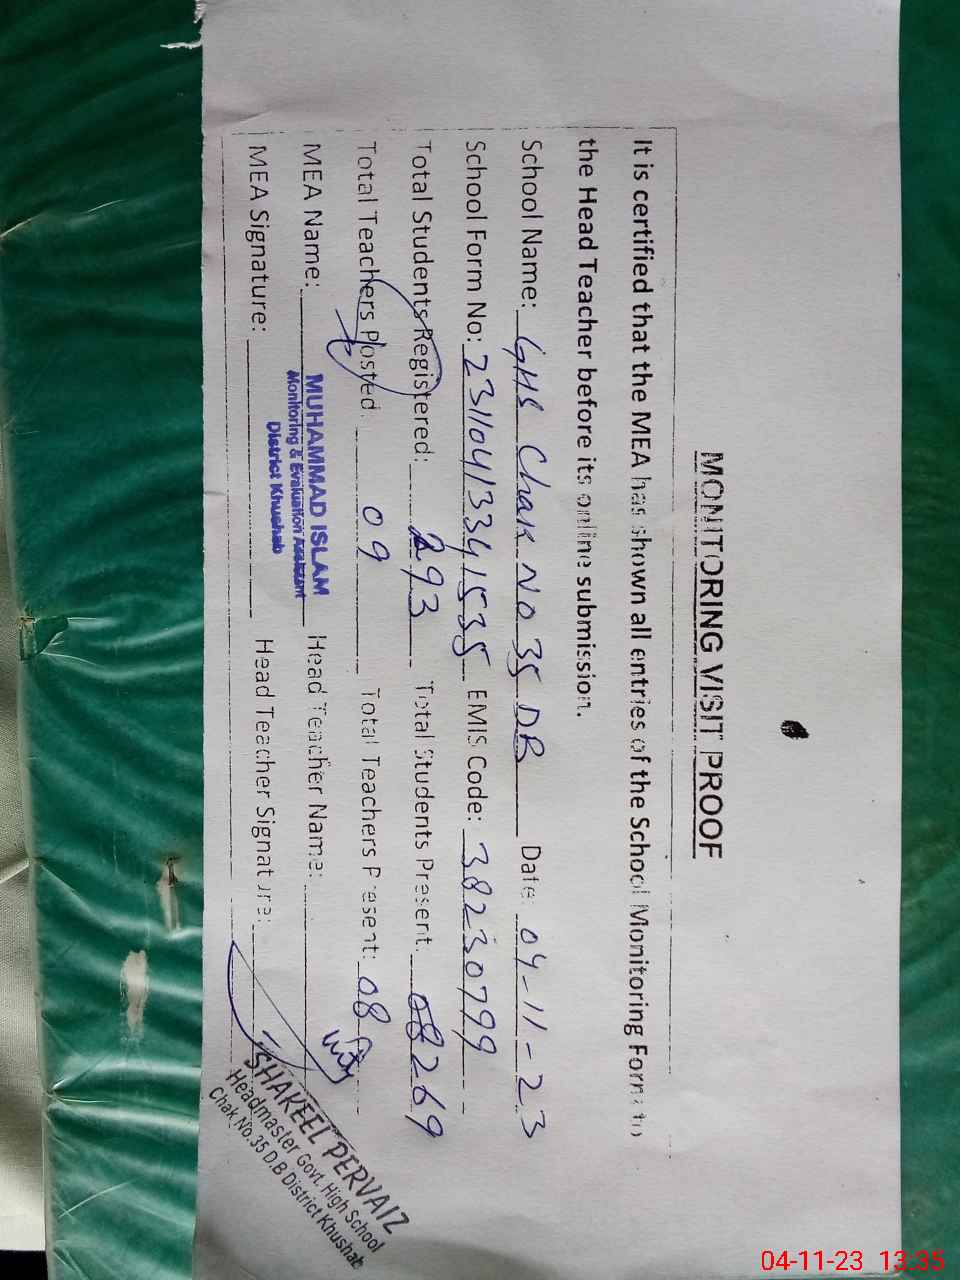 MONITORING VISIT PROOF
It is certified that the MEA has shown all entries of the School Monitoring Form to
the Head Teacher before its online submission.
School Name: GHS Chak No 35 DB Date: 04-11-23
School Form No: 23110413341535 EMIS Code: 38230799
Total Students Registered: 293 Total Students Present: 08269
Total Teachers Posted: 09 Total Teachers Present: 08
MEA Name: MUHAMMAD ISLAM Head Teacher Name:
Monitoring & Evaluation Assistant
District Khushab
MEA Signature: Head Teacher Signature:
SHAKEEL PERVAIZ
Headmaster Govt. High School
Chak No.35 D.B District Khushab
04-11-23 13:35